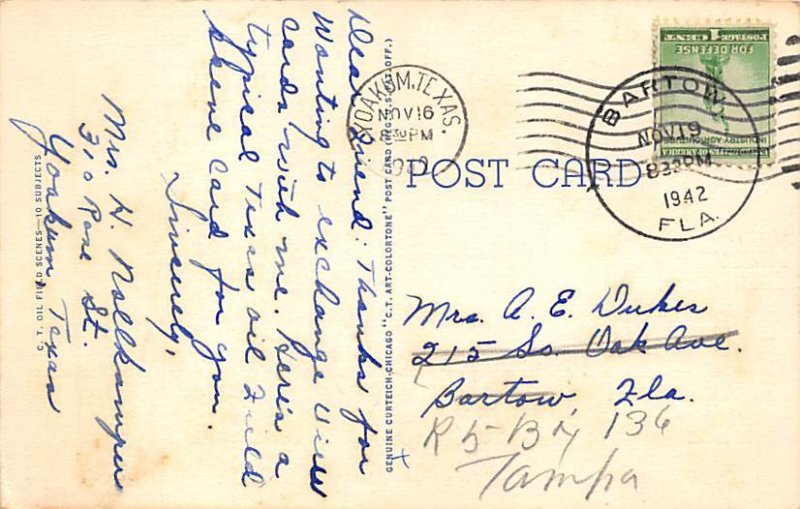 Dear Friend: Thanks for
Wanting to exchange View
cards with me. Here's a
typical Texas oil Field
Scene Card for you.
Sincerely,
Mrs. H.
310 Rose St.
Yoakum Texas
C. T. OIL FIELD SCENES—10 SUBJECTS
GENUINE CURTEICH-CHICAGO "C.T. ART-COLORTONE" POST CARD (REG. U.S. PAT. OFF.)
YOAKUM, TEXAS.
NOV 16
8 30 PM
POST CARD
BARTOW
NOV 19
8 30 PM
1942
FLA.
POSTAGE 1 CENT
FOR DEFENSE
INDUSTRY AGRICULTURE
UNITED STATES OF AMERICA
Mrs. A. E. Dukes
215 So. Oak Ave.
Bartow, Fla.
R 5 - Bx 136
Tampa